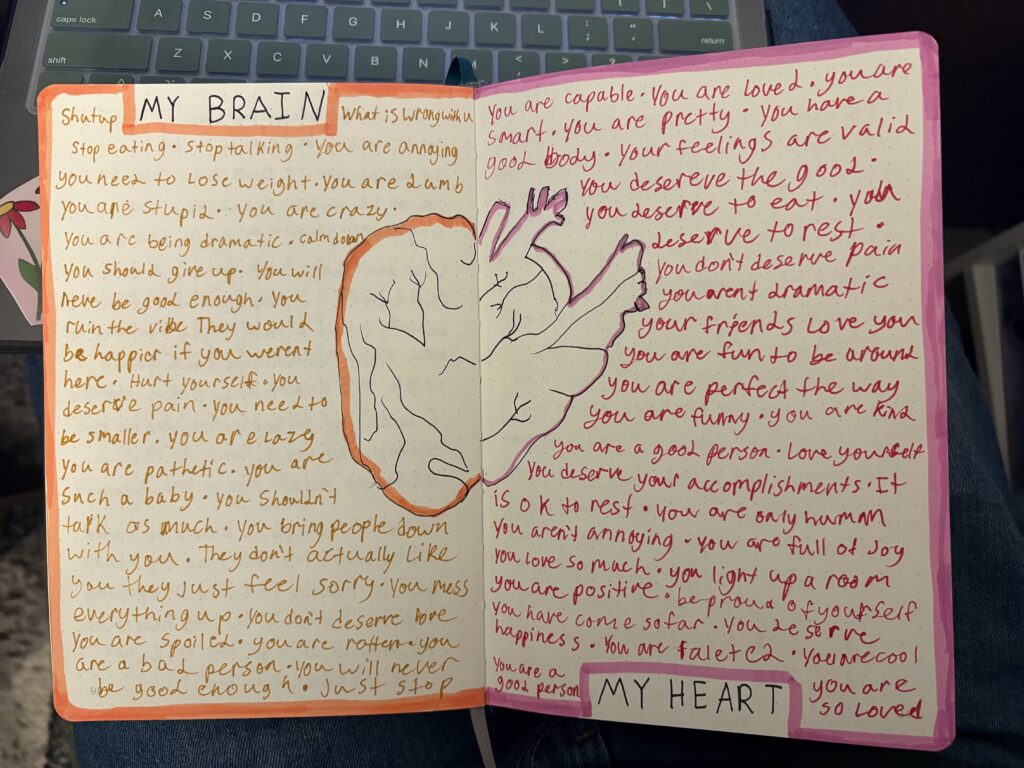 caps lock
A
S
D
F
G
H
J
K
L
:
;
"
'
return
shift
Z
X
C
V
B
N
M
<
,
>
.
?
MY BRAIN
Shatup
What is wrong with u
Stop eating · stop talking · You are annoying
you need to lose weight · you are dumb
you are stupid · you are crazy ·
you are being dramatic · calm down
you should give up · you will
neve be good enough · you
ruin the vibe They would
be happier if you werent
here · Hurt yourself · you
deserve pain · you need to
be smaller · you are lazy
you are pathetic · you are
such a baby · you shouldn't
talk as much · you bring people down
with you · They don't actually like
you they just feel sorry · you mess
everything up · you don't deserve love
you are spoiled · you are rotten · you
are a bad person · you will never
be good enough · just stop
You are capable · You are loved · you are
smart · you are pretty · you have a
good body · your feelings are valid
you desereve the good ·
you deserve to eat · you
deserve to rest ·
you don't deserve pain
you arent dramatic
your friends love you
you are fun to be around
you are perfect the way
you are funny · you are kind
you are a good person · Love yourself
you deserve your accomplishments · It
is ok to rest · you are only human
you aren't annoying · you are full of joy
you love so much · you light up a room
you are positive · be proud of yourself
you have come so far · you deserve
happiness · You are you are cool
you are a
good person
MY HEART
you are
so loved